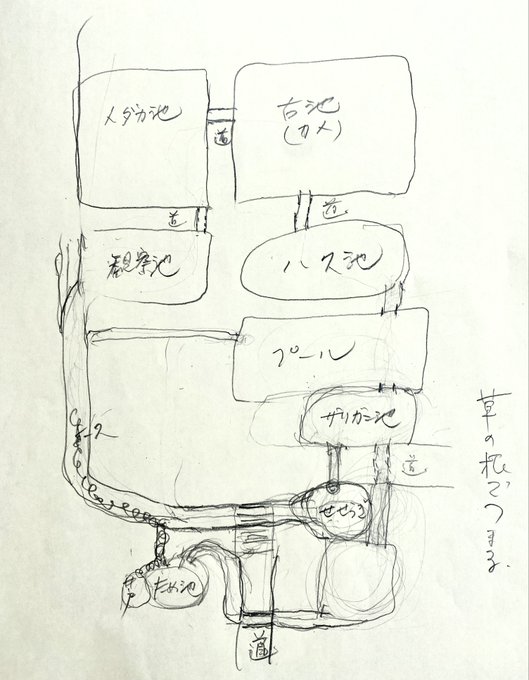 メダカ池
古池
(カメ)
道
道
道
観察池
ハス池
プール
ザリガニ池
道
せせらぎ
ため池
道
草の根でつまる。